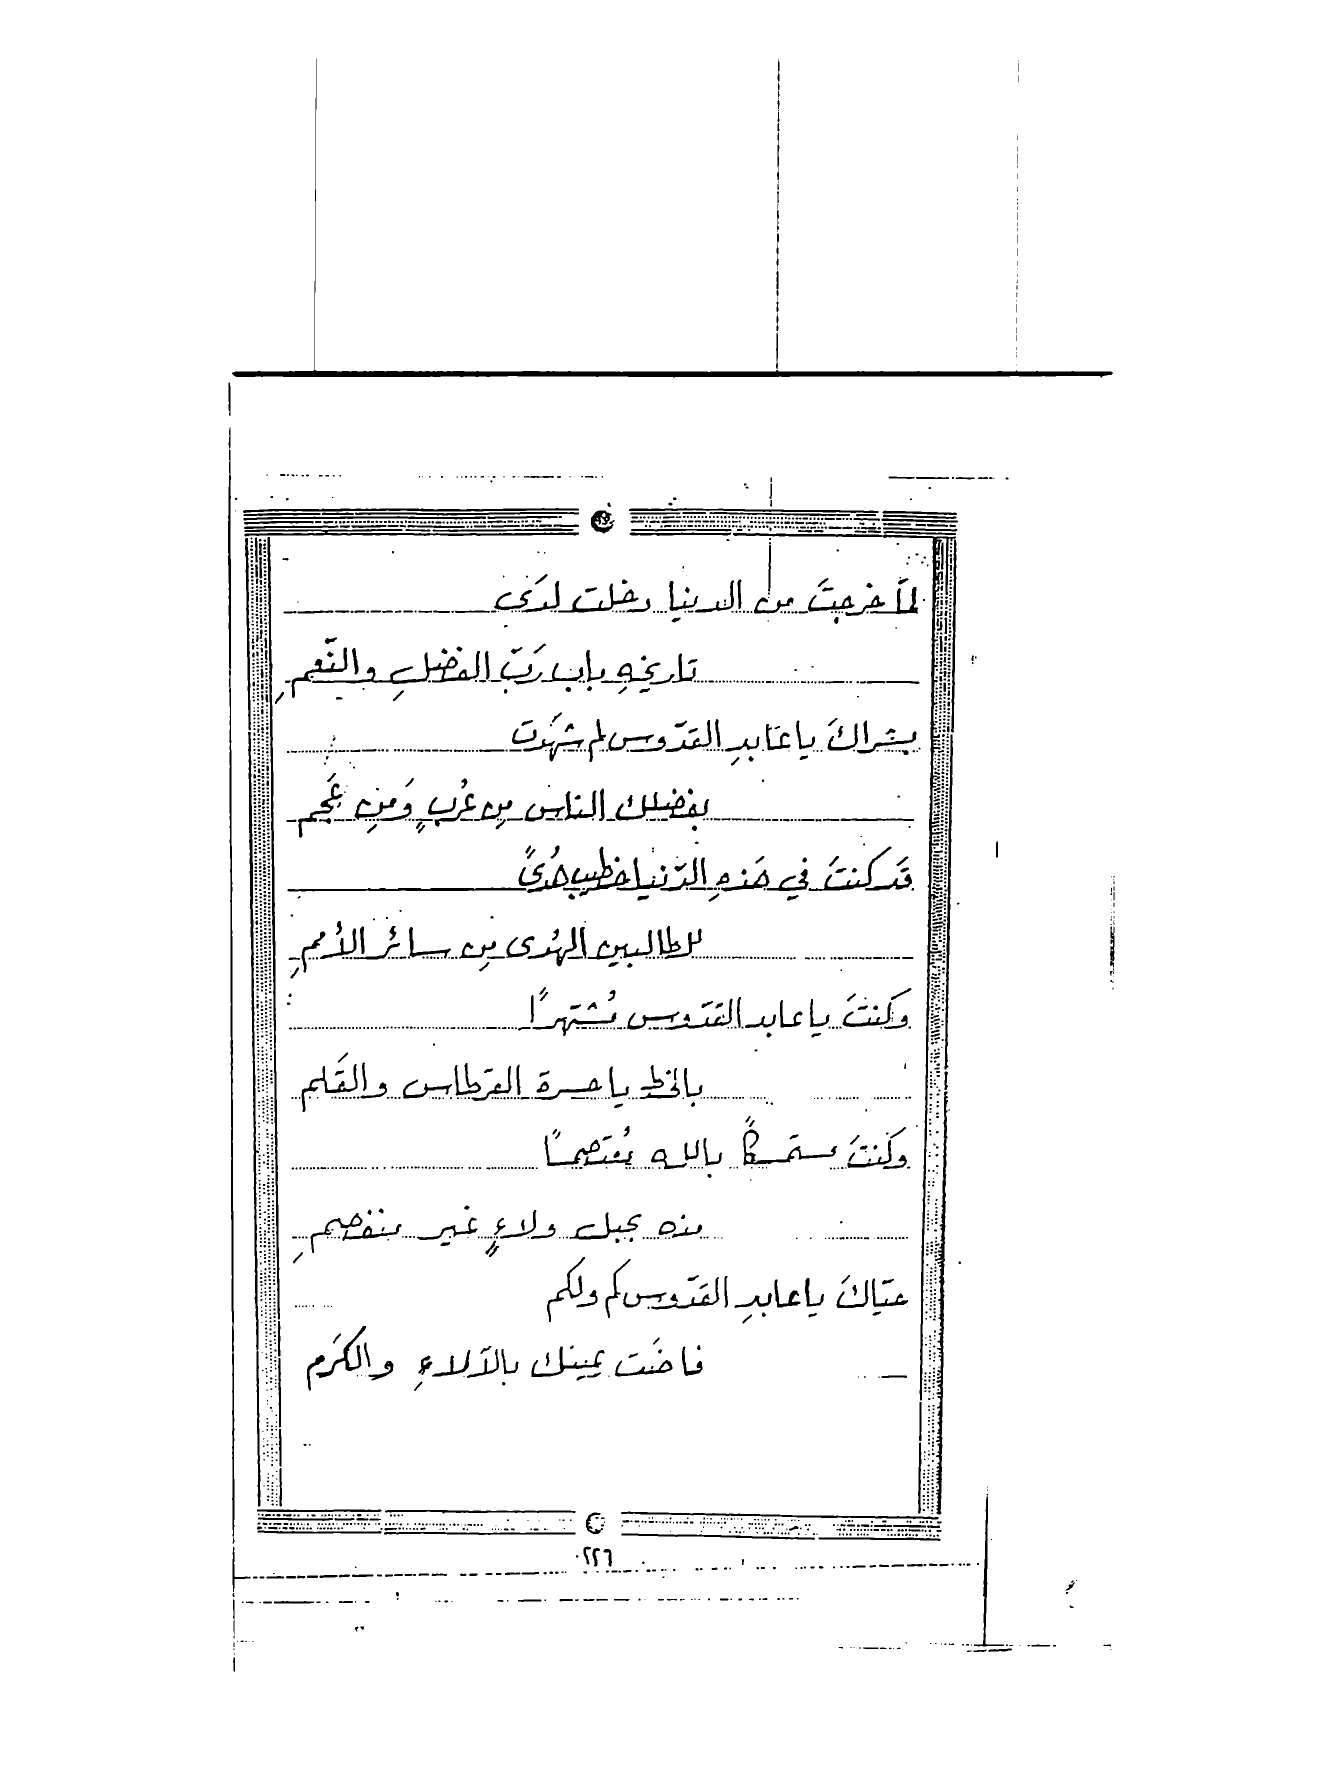 لمّا خرجتَ من الدينا دخلت لدَى
تاريخهِ باب رَبّ الفضلِ والنّعمِ
بشراكَ يا عَابدِ القدّوس لم شهَدت
بفضلك الناس مِن عُربٍ وَمنِ عَجم
قَد كنتَ في هَذهِ الدّنيا خطيب هُدىً
للطالبين الهُدى مِن سائر الأممِ
وكنتَ يا عابد القدّوس مُشتهرًا
بالخط يا حسرة القرطاس والقَلم
وكنتَ مستمَسكاً بالله مُعتَصماً
منه بحبل ولاءٍ غير منفصمِ
حيّاكَ يا عابدِ القدّوس كم ولكم
فاضَت يمينك بالآلاءِ والكرَم
٢٢٦